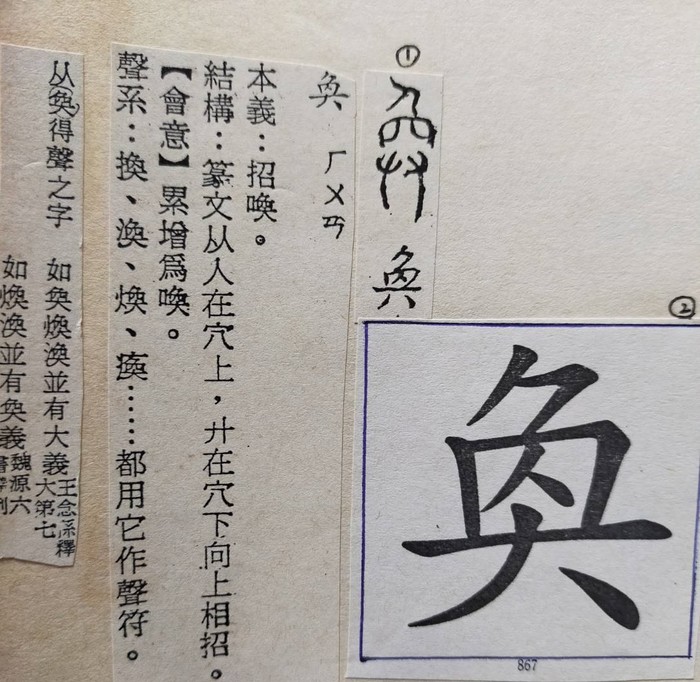 ①
奐
②
奐
867
奐 ㄏㄨㄢ
本義：招喚。
結構：篆文从人在穴上，廾在穴下向上相招。
【會意】累增爲喚。
聲系：換、渙、煥、瘓……都用它作聲符。
从奐得聲之字 如奐煥渙並有大義 王念孫釋大第七
如煥渙並有奐義 魏源六書